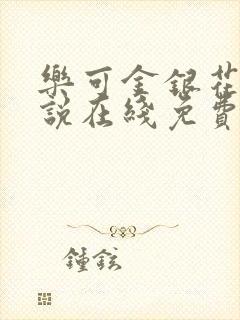 樂可金銀花
說在綫免費
鍾鉉